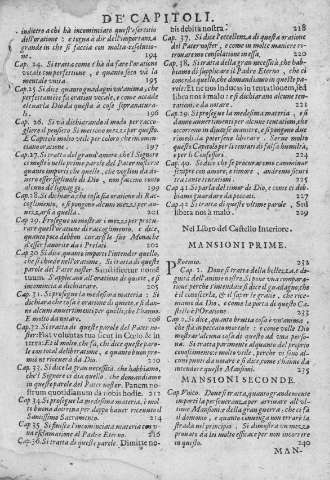 DE' CAPITOLI.
indietro a chi ha incominciato questo esercitio
dell'oratione: e torna a dir dell'importanza
grande in che si faccia con molta resolutio-
ne. 195
Cap. 24. Si tratta come s'ha da fare l'oratione
vocale con perfettione, e quanto seco và la
mentale unita. 195
Cap. 25 Si dice quanto guadagni un'anima, che
perfettamente fa oration vocale, e come accade
elevarla Dio da questa a cose sopranatura-
li. 196
Cap. 26. Si và dichiarando il modo per racco-
gliere il pensiero Si mettono mezzi per questo.
E Capitolo molto utile per coloro che incomin-
ciano oratione. 197
Cap. 27. Si tratta del grand'amore che'l Signore
ci mostrò nelle prime parole del Pater noster:
quanto importa che quelle, che vogliono da do-
vero esser figliuole di Dio, non faccino conto
alcuno de' lignaggi. 199
Cap. 28 Si dichiara che cosa sia oratione di Rac-
coglimento, e si pongono alcuni mezzi per av-
vezzarsi a quella. 201
Cap. 29. Proseguesi a mostrare i mezzi per procu-
rare questa oratione di raccoglimento, e dice,
quanto poco debbon curarsi le sue Monache
d'esser favorite da i Prelati.
Cap. 30 Dice quanto importi l'intender quello,
che si dimanda, e tratta di queste
parole del Pater noster: Sanctificetur nomen
tuum. S'applicano all'oratione di quiete, e si
incomincia a dichiararla. 205
Cap. 31. Si prosegue la medesima materia: Si
dichiara che cosa è oratione di quiete, e si dan-
no alcuni avvertimenti per quelle, che l'hanno.
E molto utile. 207
Cap. 32 Si tratta di queste parole del Pater no-
ster: Fiat voluntas tua sicut in Coelo & in
terra. E del molto che fa, chi dice queste paro-
le con total deliberatione, e quanto bene pre-
mio ne riceverà da Dio. 210
Cap. 33. Si dice la gran necessità che habbiamo,
che'l Signore ci dia quello, che domandiamo
in queste parole del Pater noster. Panem no-
strum quotidianum da nobis hodie. 212
Cap. 34 Si prosegue la medesima materia, è mol-
to buona dottrina per doppo haver ricevuto il
Santissimo Sacramento. 214
Cap. 35 Si finisce l'incominciata materia con
un'esclamatione al Padre Eterno. 216
Cap. 36. Si tratta di quelle parole. Dimitte no-
bis debita nostra. 218
Cap. 37. Si dice l'eccellenza di questa oratione
del Pater noster, e come in molte maniere ri-
troveremo consolatione in essa. 220
Cap. 38. Si tratta della gran necessità, che hab-
biamo di supplicare il Padre Eterno, che ci
conceda quello, che domandiamo in queste pa-
role: Et ne nos inducas in tentationem, sed
libera nos à malo; e si dichiarano alcune ten-
tationi. 221
Cap. 39. Si prosegue la medesima materia, e si
danno avvisi d'alcune tentationi, e si pongono due
rimedi da potersene liberare. Questo
Capitolo per li tentati di falsa humiltà,
e per li Confessori. 223
Cap. 40. Si dice che se procuraremo caminar
sempre con amore, e timor di Dio, andaremo si-
cure fra tante tentationi. 225
Cap. 41 Si parla del timor di Dio, e come ci dob-
biamo guardare da peccati. 227
Cap. 42. Si tratta di queste ultime parole, Sed
libera nos à malo. 229
Nel Libro del Castello Interiore.
MANSIONI PRIME.
Proemio. 232
Cap. 1. Dove si tratta della bellezza, e di-
gnità dell'anime nostre. Si pone una compara-
tione, perche s'intenda e si dice il guadagno, che
è il conoscerla, & il saper le gratie, che rice-
viamo da Dio, e come la porta di questo Ca-
stello è l'Oratione. 233
Cap. 2. Si dice, quanto brutta cosa è un'anima,
che stà in peccato mortale: e come volle Dio
mostrar alcuna cosa di ciò ad una certa perso-
na. Si tratta parimente alquanto del proprio
conoscimento: è molto utile, perche vi sono alcu-
ni punti da notare, e si dice, come s'hanno da
intendere queste Mansioni. 235
MANSIONI SECONDE.
Cap. Unico. Dove si tratta, quanto grandemente
importi la perseveranza, per arrivare all'ul-
time Mansioni, e della gran guerra, che ci fa
il demonio, e quanto convenga non errar la
strada nel principio. Si dimostra un mezzo
provato da lei molto efficace per non incorrere
in questo. 240
MAN-